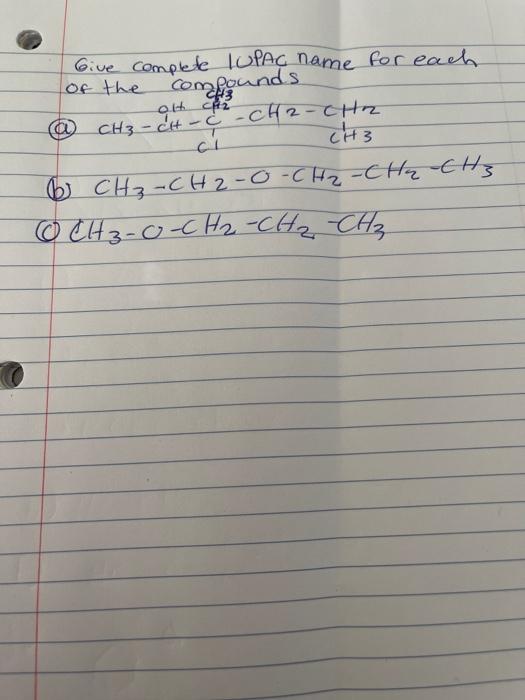 Give complete IUPAC name for each
of the compounds
CH3
OH CH2
(a) CH3 - CH - C - CH2 - CH2
Cl CH3
(b) CH3 - CH2 - O - CH2 - CH2 - CH3
(c) CH3 - O - CH2 - CH2 - CH3